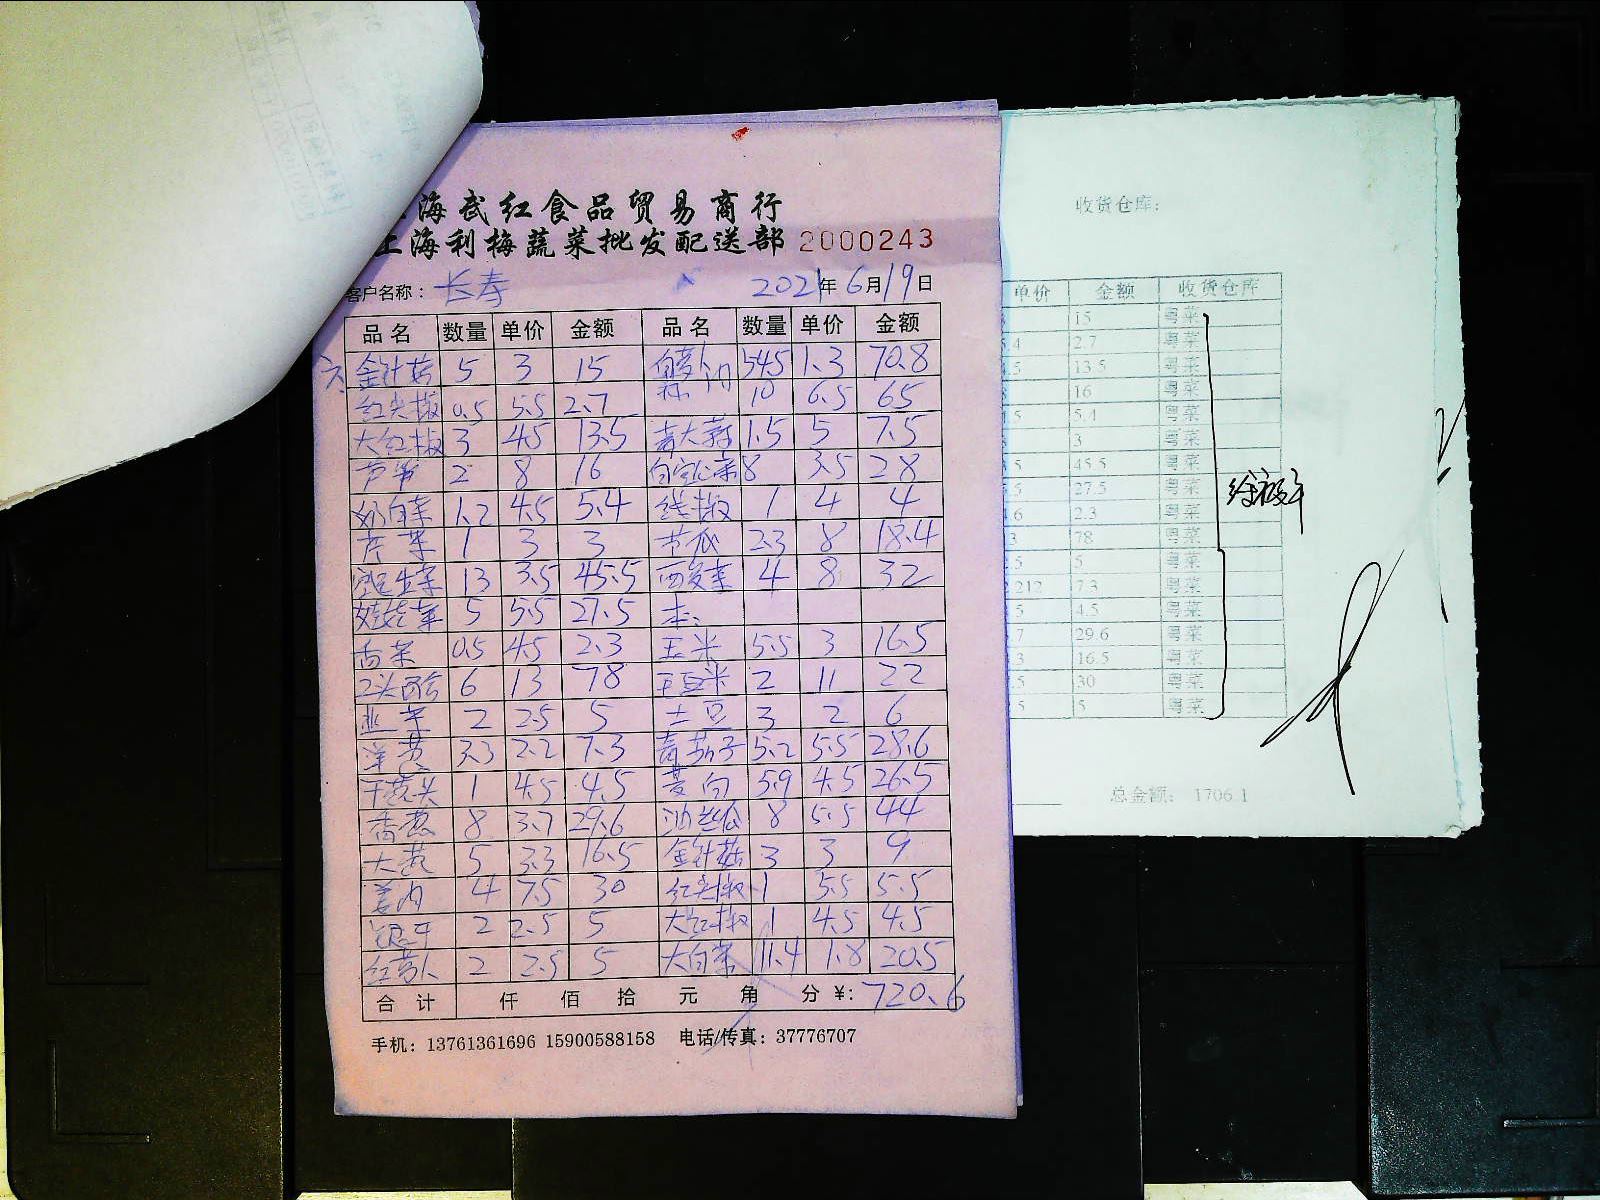 海武红食品贸易商行
上海利梅蔬菜批发配送部 2000243
客户名称： 长寿 2021年6月19日
品名 数量 单价 金额 品名 数量 单价 金额
金针菇 5 3 15 白萝卜 54.5 1.3 70.8
红尖椒 0.5 5.5 2.7 10 6.5 65
大红椒 3 4.5 13.5 青大蒜 1.5 5 7.5
芦笋 2 8 16 8 3.5 28
奶白菜 1.2 4.5 5.4 线椒 1 4 4
芹菜 1 3 3 节瓜 2.3 8 18.4
生菜 13 3.5 45.5 西芹菜 4 8 32
娃娃菜 5 5.5 27.5
香菜 0.5 4.5 2.3 玉米 5.5 3 16.5
6 13 78 豆米 2 11 22
2 2.5 5 土豆 3 2 6
洋葱 3.3 2.2 7.3 青茄子 5.2 5.5 28.6
干葱头 1 4.5 4.5 茭白 5.9 4.5 26.5
香葱 8 3.7 29.6 8 5.5 44
大葱 5 3.3 16.5 金针菇 3 3 9
姜肉 4 7.5 30 红尖椒 1 5.5 5.5
银牙 2 2.5 5 大红椒 1 4.5 4.5
2 2.5 5 大白菜 11.4 1.8 20.5
合计 仟 佰 拾 元 角 分 ¥: 720.6
手机：13761361696 15900588158 电话/传真：37776707
收货仓库:
单价 金额 收货仓库
15 粤菜
2.7 粤菜
13.5 粤菜
16 粤菜
5.4 粤菜
3 粤菜
45.5 粤菜
27.5 粤菜
2.3 粤菜
78 粤菜
5 粤菜
7.3 粤菜
4.5 粤菜
29.6 粤菜
16.5 粤菜
30 粤菜
5 粤菜
总金额: 1706.1